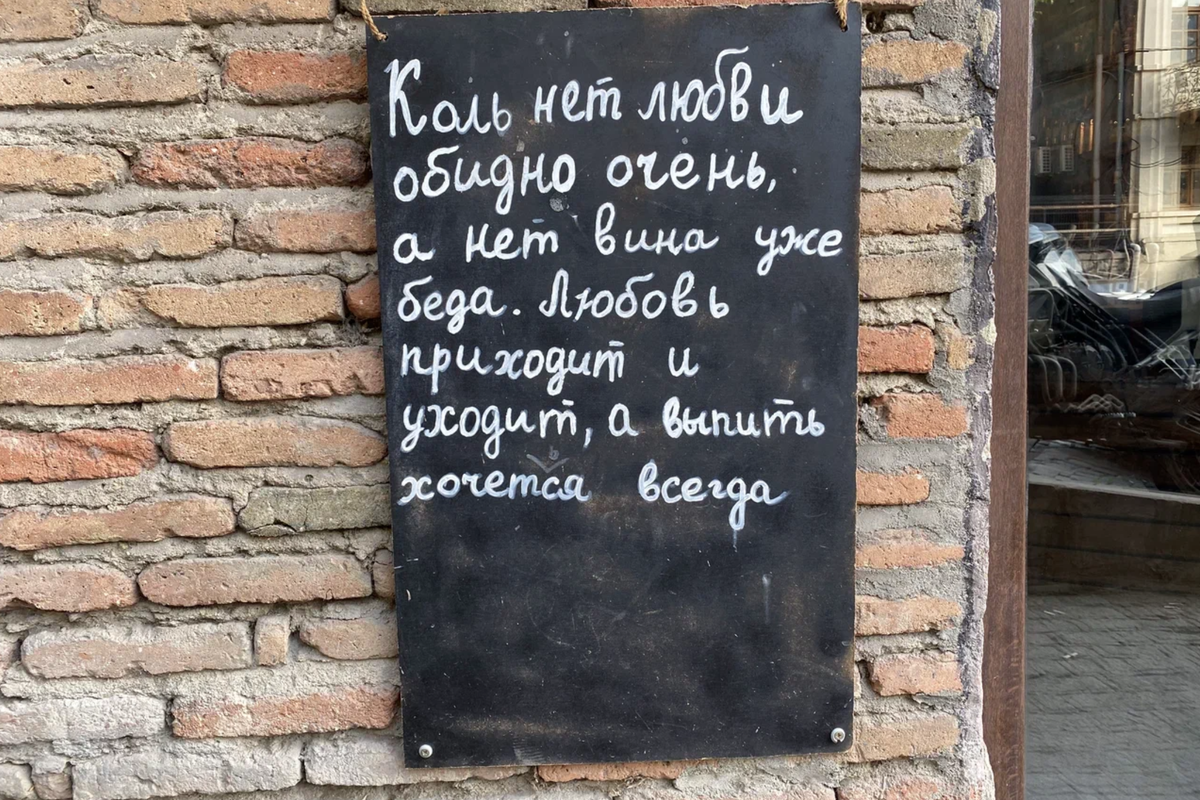 Коль нет любви
обидно очень,
а нет вина уже
беда. Любовь
приходит и
уходит, а выпить
хочется всегда